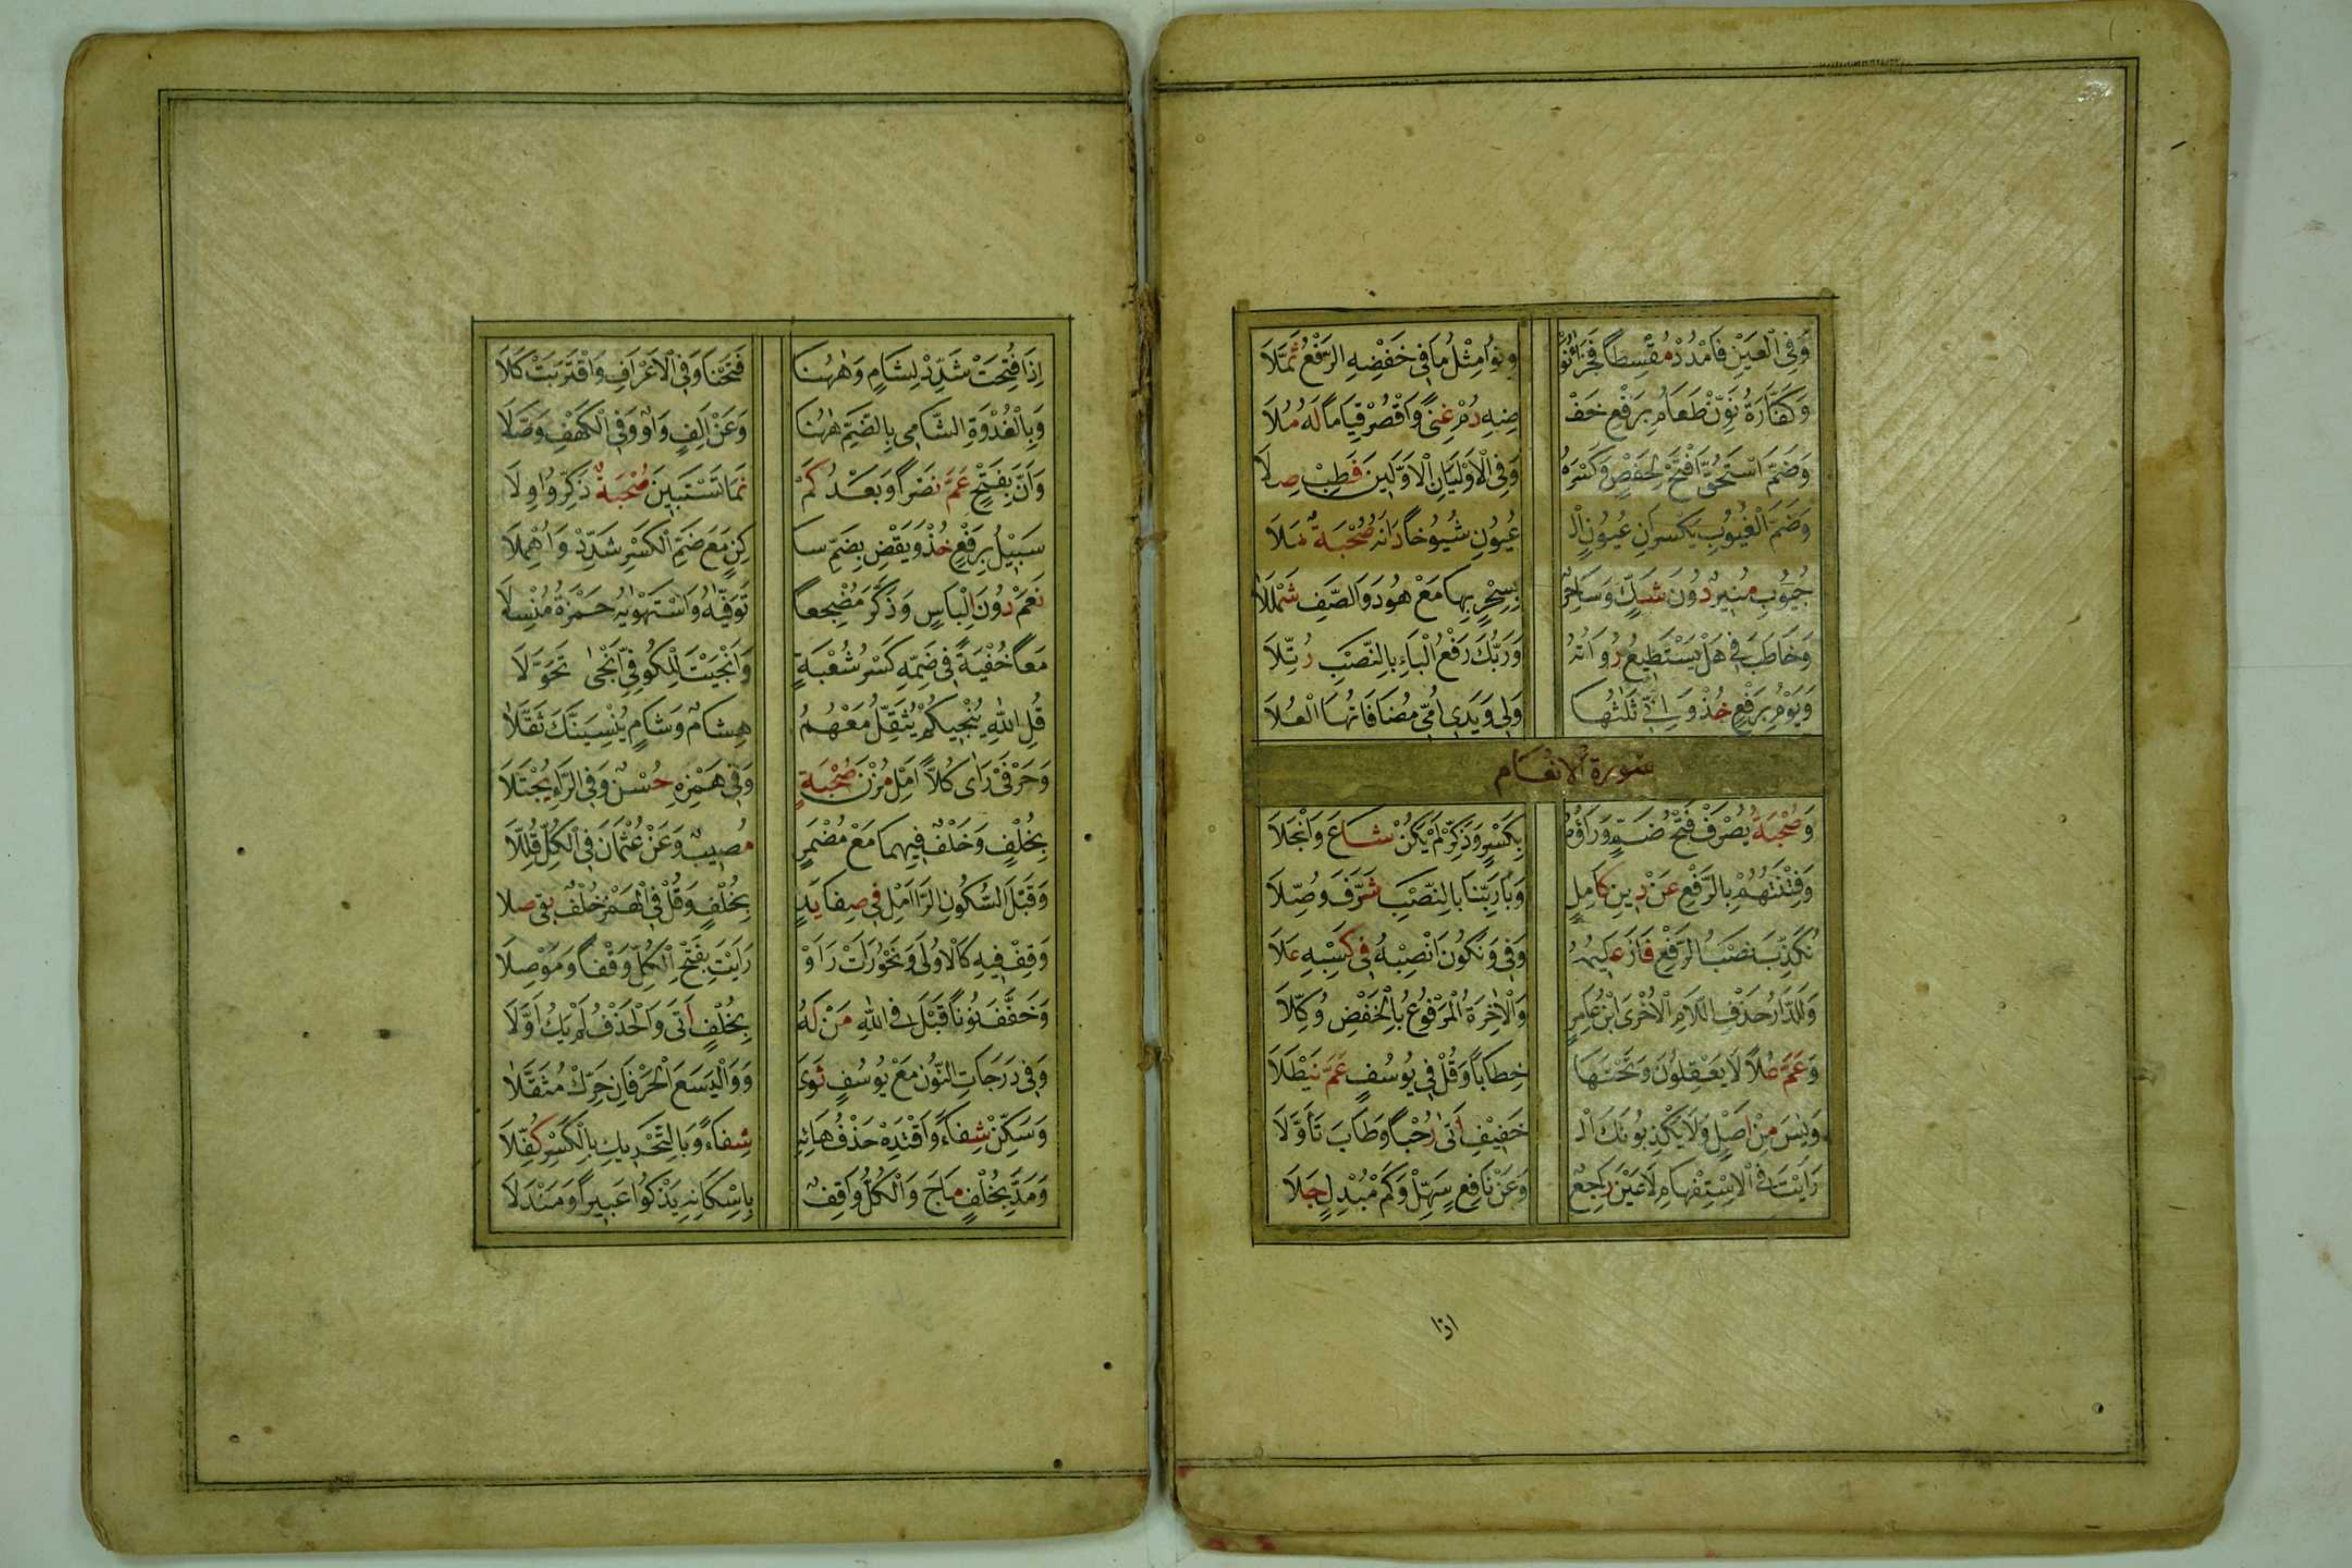 وَفِي الْعَيْنِ فَامْدُدْ مُقْسِطًا فَجَزَاءُ نَوْ وِنُوا مِثْلُ مَا فِي خَفْضِهِ الرَّفْعُ ثُمَّلَا
وَكَفَّارَةٌ نَوِّنْ طَعَامُ بِرَفْعِ خَفْ ضِهِ دُمْ غِنًى وَاقْصُرْ قِيَامًا لَهُ مُلَا
وَضَمَّ اسْتُحِقَّ افْتَحْ لِحَفْصٍ وَكَسْرَهُ وَفِي الْأَوْلَيَانِ الْأَوَّلِينَ فَطِبْ صِلَا
وَضَمَّ الْغُيُوبِ يَكْسِرَانِ عُيُونِ الْـ عُيُونِ شُيُوخًا دَانَهُ صُحْبَةٌ مَلَا
جُيُوبِ مُنِيرٌ دُونَ شَكٍّ وَسَاحِرٌ بِسِحْرٍ بِهَا مَعْ هُودَ وَالصَّفِّ شَمْلَلَا
وَخَاطَبَ فِي هَلْ يَسْتَطِيعُ رُوَاتُهُ وَرَبُّكَ رَفْعُ الْبَاءِ بِالنَّصْبِ رُتِّلَا
وَيَوْمُ بِرَفْعٍ خُذْ وَإِنِّي ثَلَاثُهَا وَلِي وَيَدِي أُمِّي مُضَافَاتُهَا الْعُلَا
سورة الأنعام
وَصُحْبَةُ يُصْرَفْ فَتْحُ ضَمٍّ وَرَاؤُهُ بِكَسْرٍ وَذَكِّرْ لَمْ يَكُنْ شَاعَ وَانْجَلَا
وَفِتْنَتُهُمْ بِالرَّفْعِ عَنْ دِينِ كَامِلٍ وَبَا رَبِّنَا بِالنَّصْبِ شَرَّفَ وُصَّلَا
نُكَذِّبَ نَصْبُ الرَّفْعِ فَازَ عَلِيمُهُ وَفِي وَنَكُونَ انْصِبْهُ فِي كَسْبِهِ عَلَا
وَلَلدَّارُ حَذْفُ اللَّامِ الْأُخْرَى ابْنُ عَامِرٍ وَالْآخِرَةُ الْمَرْفُوعُ بِالْخَفْضِ وُكِّلَا
وَعَمَّ عُلًا لَا يَعْقِلُونَ وَتَحْتَهَا خِطَابًا وَقُلْ فِي يُوسُفٍ عَمَّ نَيْطَلَا
وَيس مِنْ أَصْلٍ وَلَا يَكْذِبُونَكَ الْـ خَفِيفُ أَتَى رُحْبًا وَطَابَ تَأَوُّلَا
رَأَيْتَ فِي الِاسْتِفْهَامِ لَا عَيْنَ رَاجِعٌ وَعَنْ نَافِعٍ سَهِّلْ وَكَمْ مُبْدِلٍ جَلَا
اذا
إِذَا فُتِحَتْ شَدِّدْ لِشَامٍ وَهَهُنَا فَتَحْنَا وَفِي الْأَعْرَافِ وَاقْتَرَبَتْ كَلَا
وَبِالْغُدْوَةِ الشَّامِي بِالضَّمِّ هَهُنَا وَعَنْ أَلِفٍ وَاوٌ وَفِي الْكَهْفِ وَصَّلَا
وَأَنَّ بِفَتْحٍ عَمَّ نَصْرًا وَبَعْدُ كَمْ نَمَا تَسْتَبِينَ صُحْبَةٌ ذَكَّرُوا وِلَا
سَبِيلُ بِرَفْعٍ خُذْ وَيَقْضِ بِضَمِّ سَا كِنٍ مَعَ ضَمِّ الْكَسْرِ شَدِّدْ وَأَهْمِلَا
نَعَمْ دُونَ إِلْبَاسٍ وَذَكَّرَ مُضْجِعًا تَوَفِّيهُ وَاسْتَهْوِيهُ حَمْزَةُ مُنْسِلَا
مَعًا خُفْيَةً فِي ضَمِّهِ كَسْرُ شُعْبَةٍ وَأَنْجَيْتَ لِلْكُوفِيِّ أَنْجَى تَحَوَّلَا
قُلِ اللهُ يُنْجِيكُمْ يُثَقِّلُ مَعْهُمُ هِشَامٌ وَشَامٍ يُنْسِيَنَّكَ ثَقَّلَا
وَحَرْفَيْ رَأَى كُلًّا أَمِلْ مُزْنَ صُحْبَةٍ وَفِي هَمْزِهِ حُسْنٌ وَفِي الرَّاءِ يُجْتَلَا
بِخُلْفٍ وَخُلْفٌ فِيهِمَا مَعَ مُضْمَرٍ مُصِيبٌ وَعَنْ عُثْمَانَ فِي الْكُلِّ قَلِّلَا
وَقَبْلَ السُّكُونِ الرَّا أَمِلْ فِي صِفَا يَدٍ بِخُلْفٍ وَقُلْ فِي الْهَمْزِ خُلْفٌ يَقِي صِلَا
وَقِفْ فِيهِ كَالْأُولَى وَنَحْوُ رَأَتْ رَأَوْا رَأَيْتَ بِفَتْحِ الْكُلِّ وَقْفًا وَمَوْصِلَا
وَخَفَّفَ نُونًا قَبْلَ فِي اللهِ مَنْ لَهُ بِخُلْفٍ أَتَى وَالْحَذْفُ لَمْ يَكُ أَوَّلَا
وَفِي دَرَجَاتِ النُّونُ مَعْ يُوسُفٍ ثَوَى وَوَالْيَسَعَ الْحَرْفَانِ حَرِّكْ مُثَقَّلَا
وَسَكِّنْ شِفَاءً وَاقْتَدِهْ حَذْفُ هَائِهِ شِفَاءً وَبِالتَّحْرِيكِ بِالْكَسْرِ كُفِّلَا
وَمُدَّ بِخُلْفٍ مَاجَ وَالْكُلُّ وَاقِفٌ بِإِسْكَانِهِ يَذْكُو عَبِيرًا وَمَنْدَلَا